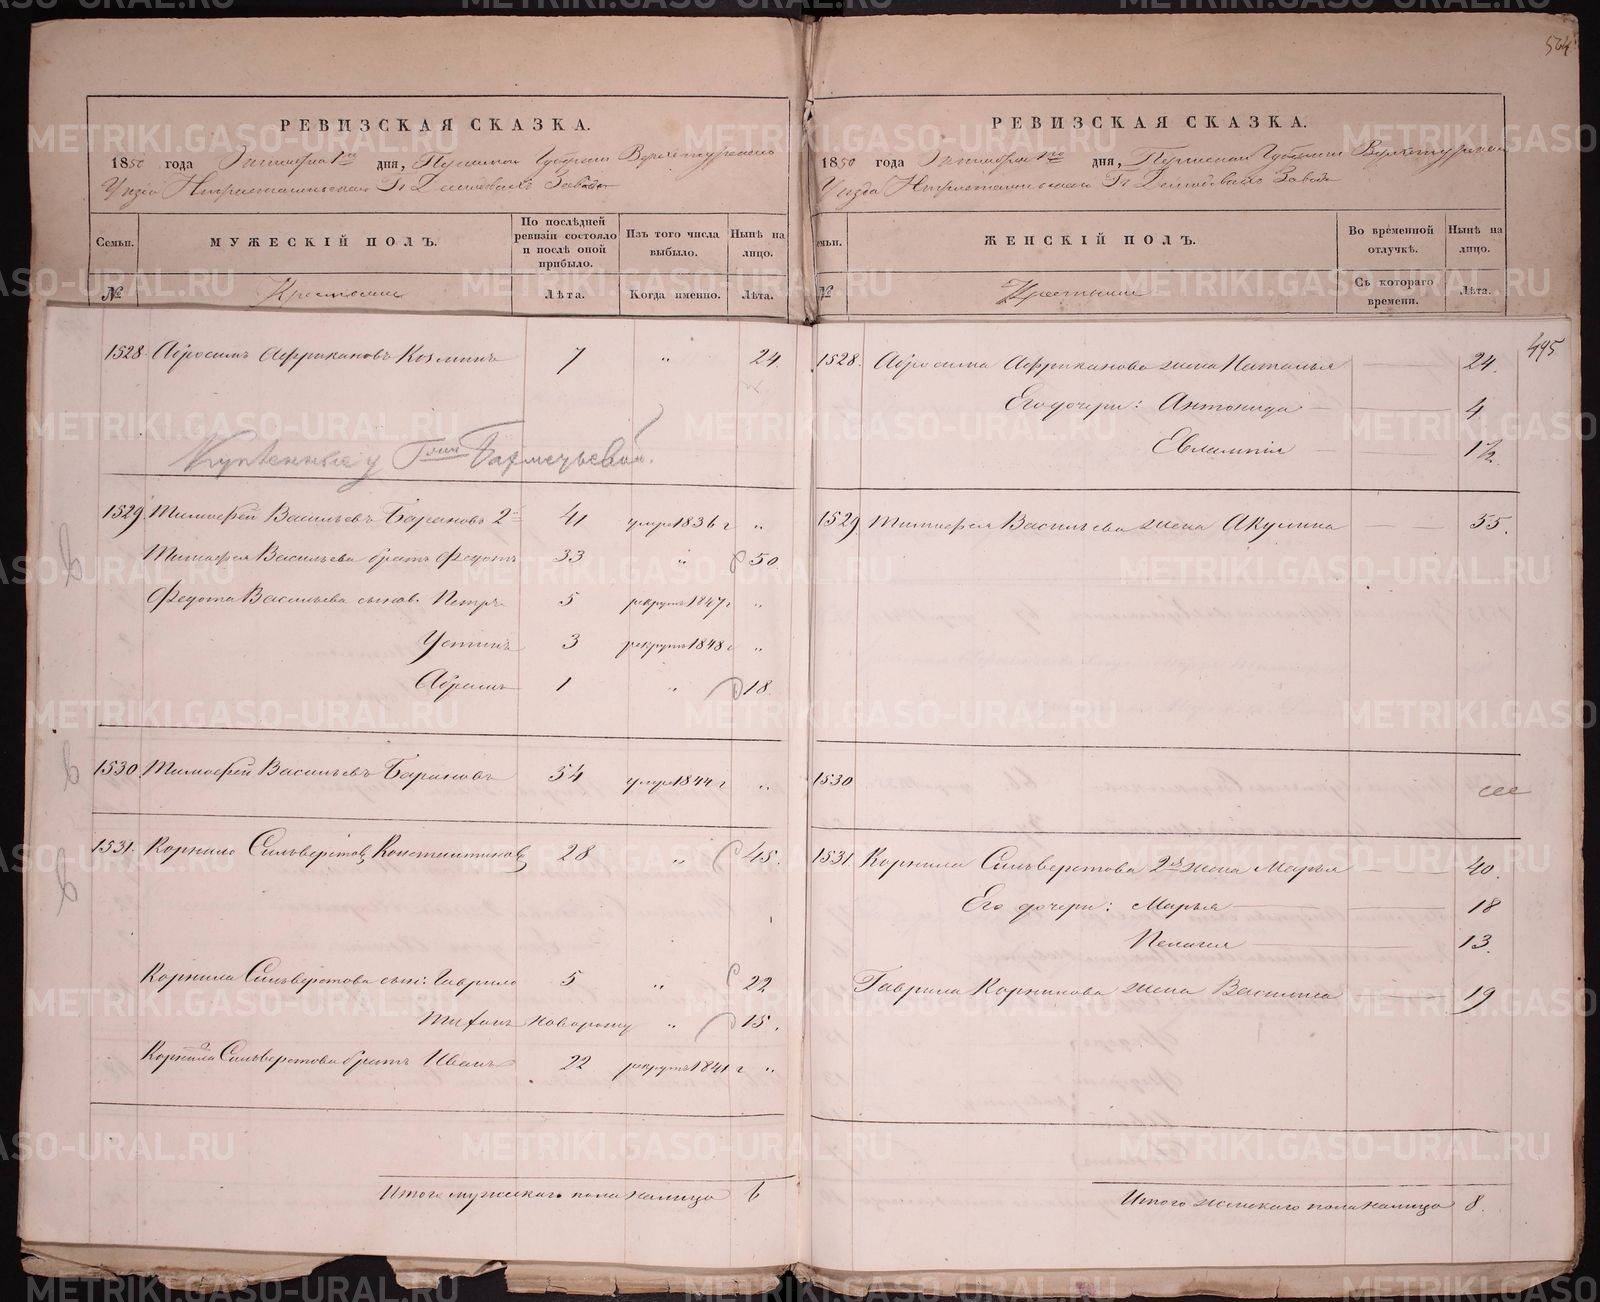 564
РЕВИЗСКАЯ СКАЗКА.
1850 года Октября 1го дня, Пермской Губернии Верхотурскаго
Уѣзда Нижнетагильскаго Гг. Демидовыхъ Завода
Семьи.
МУЖЕСКІЙ ПОЛЪ.
По послѣдней ревизіи состояло и послѣ оной прибыло.
Изъ того числа выбыло.
Нынѣ на лицо.
№
Крестьяне
Лѣта.
Когда именно.
Лѣта.
1528. Абросимъ Африкановъ Козминъ 7 " 24.
Купленные у Гжи
1529. Тимофей Васильевъ Барановъ 2й 41 умре 1836 г "
Тимофея Васильева братъ Федотъ 33 " 50
Федота Васильева сынов. Петръ 5 рекрутъ 1847 г "
Устинъ 3 рекрутъ 1848 г "
Абрамъ 1 " 18.
1530. Тимофей Васильевъ Барановъ 54 умре 1844 г "
1531. Корнило Сильверстовъ Константиновъ 28 " 45.
Корнила Сильверстова сын: Гаврило 5 " 22
Титъ новорожд " 15.
Корнила Сильверстова братъ Иванъ 22 рекрутъ 1841 г "
Итого мужескаго пола налицо 6
РЕВИЗСКАЯ СКАЗКА.
1850 года Октября 1го дня, Пермской Губерніи Верхотурскаго
Уѣзда Нижнетагильскаго Гг. Демидовыхъ Завода
Семьи.
ЖЕНСКІЙ ПОЛЪ.
Во временной отлучкѣ.
Нынѣ на лицо.
№
Крестьяне
Съ котораго времени.
Лѣта.
495
1528. Абросима Африканова жена Наталья 24.
Его дочери: Антонида 4.
Евлампія 1½
1529. Тимофея Васильева жена Акулина 55.
1530
1531. Корнила Сильверстова 2я жена Марья 40.
Его дочери: Марья 18
Пелагея 13.
Гаврила Корнилова жена Василиса 19
Итого женскаго пола налицо 8.
METRIKI.GASO-URAL.RU